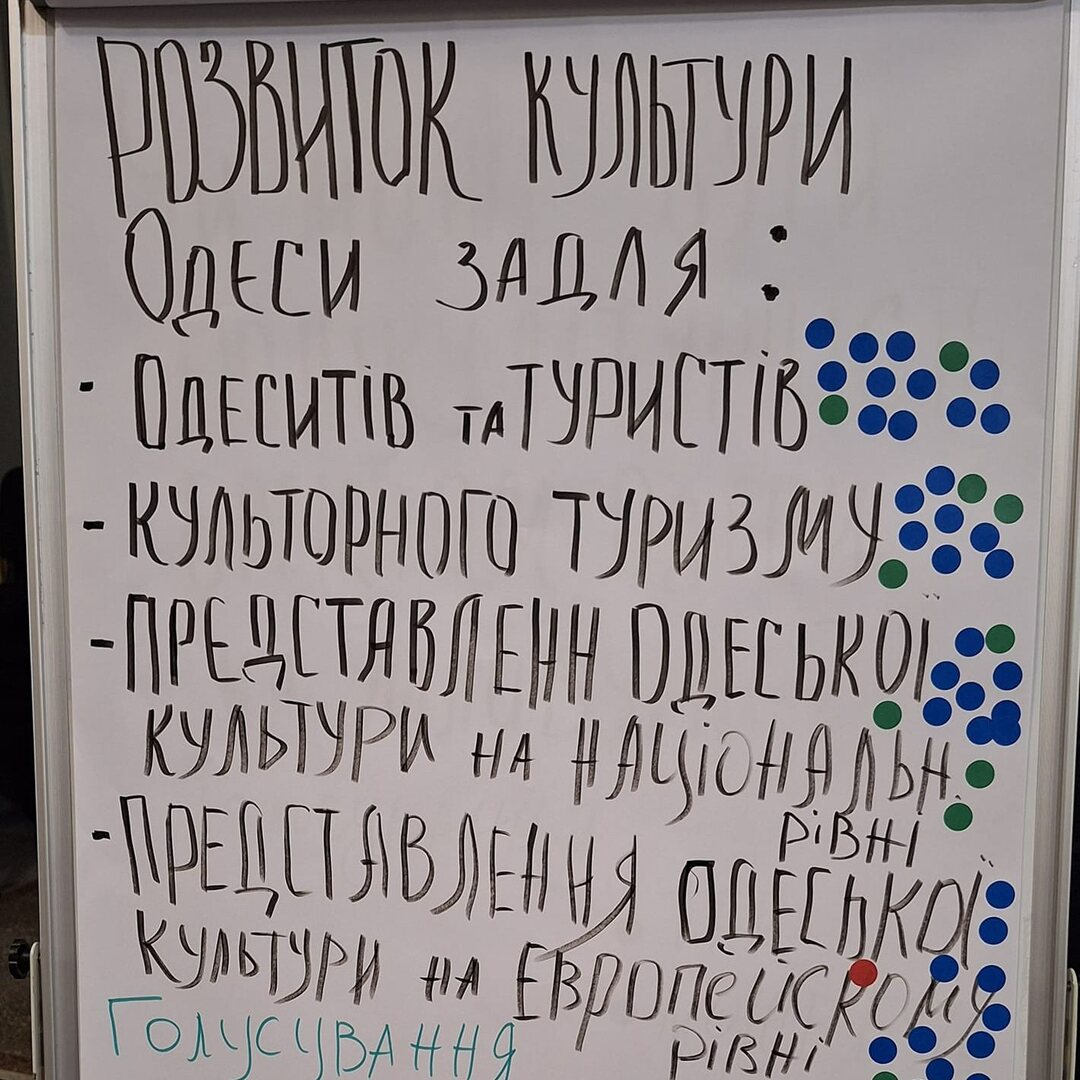 РОЗВИТОК КУЛЬТУРИ
ОДЕСИ ЗАДЛЯ :
- ОДЕСИТІВ ТА ТУРИСТІВ
- КУЛЬТОРНОГО ТУРИЗМУ
- ПРЕДСТАВЛЕНН ОДЕСЬКОЇ
КУЛЬТУРИ НА НАЦІОНАЛЬН.
РІВНІ
- ПРЕДСТАВЛЕННЯ ОДЕСЬКОЇ
КУЛЬТУРИ НА ЕВРОПЕЙСКОМУ
РІВНІ
ГОЛУСУВАННЯ